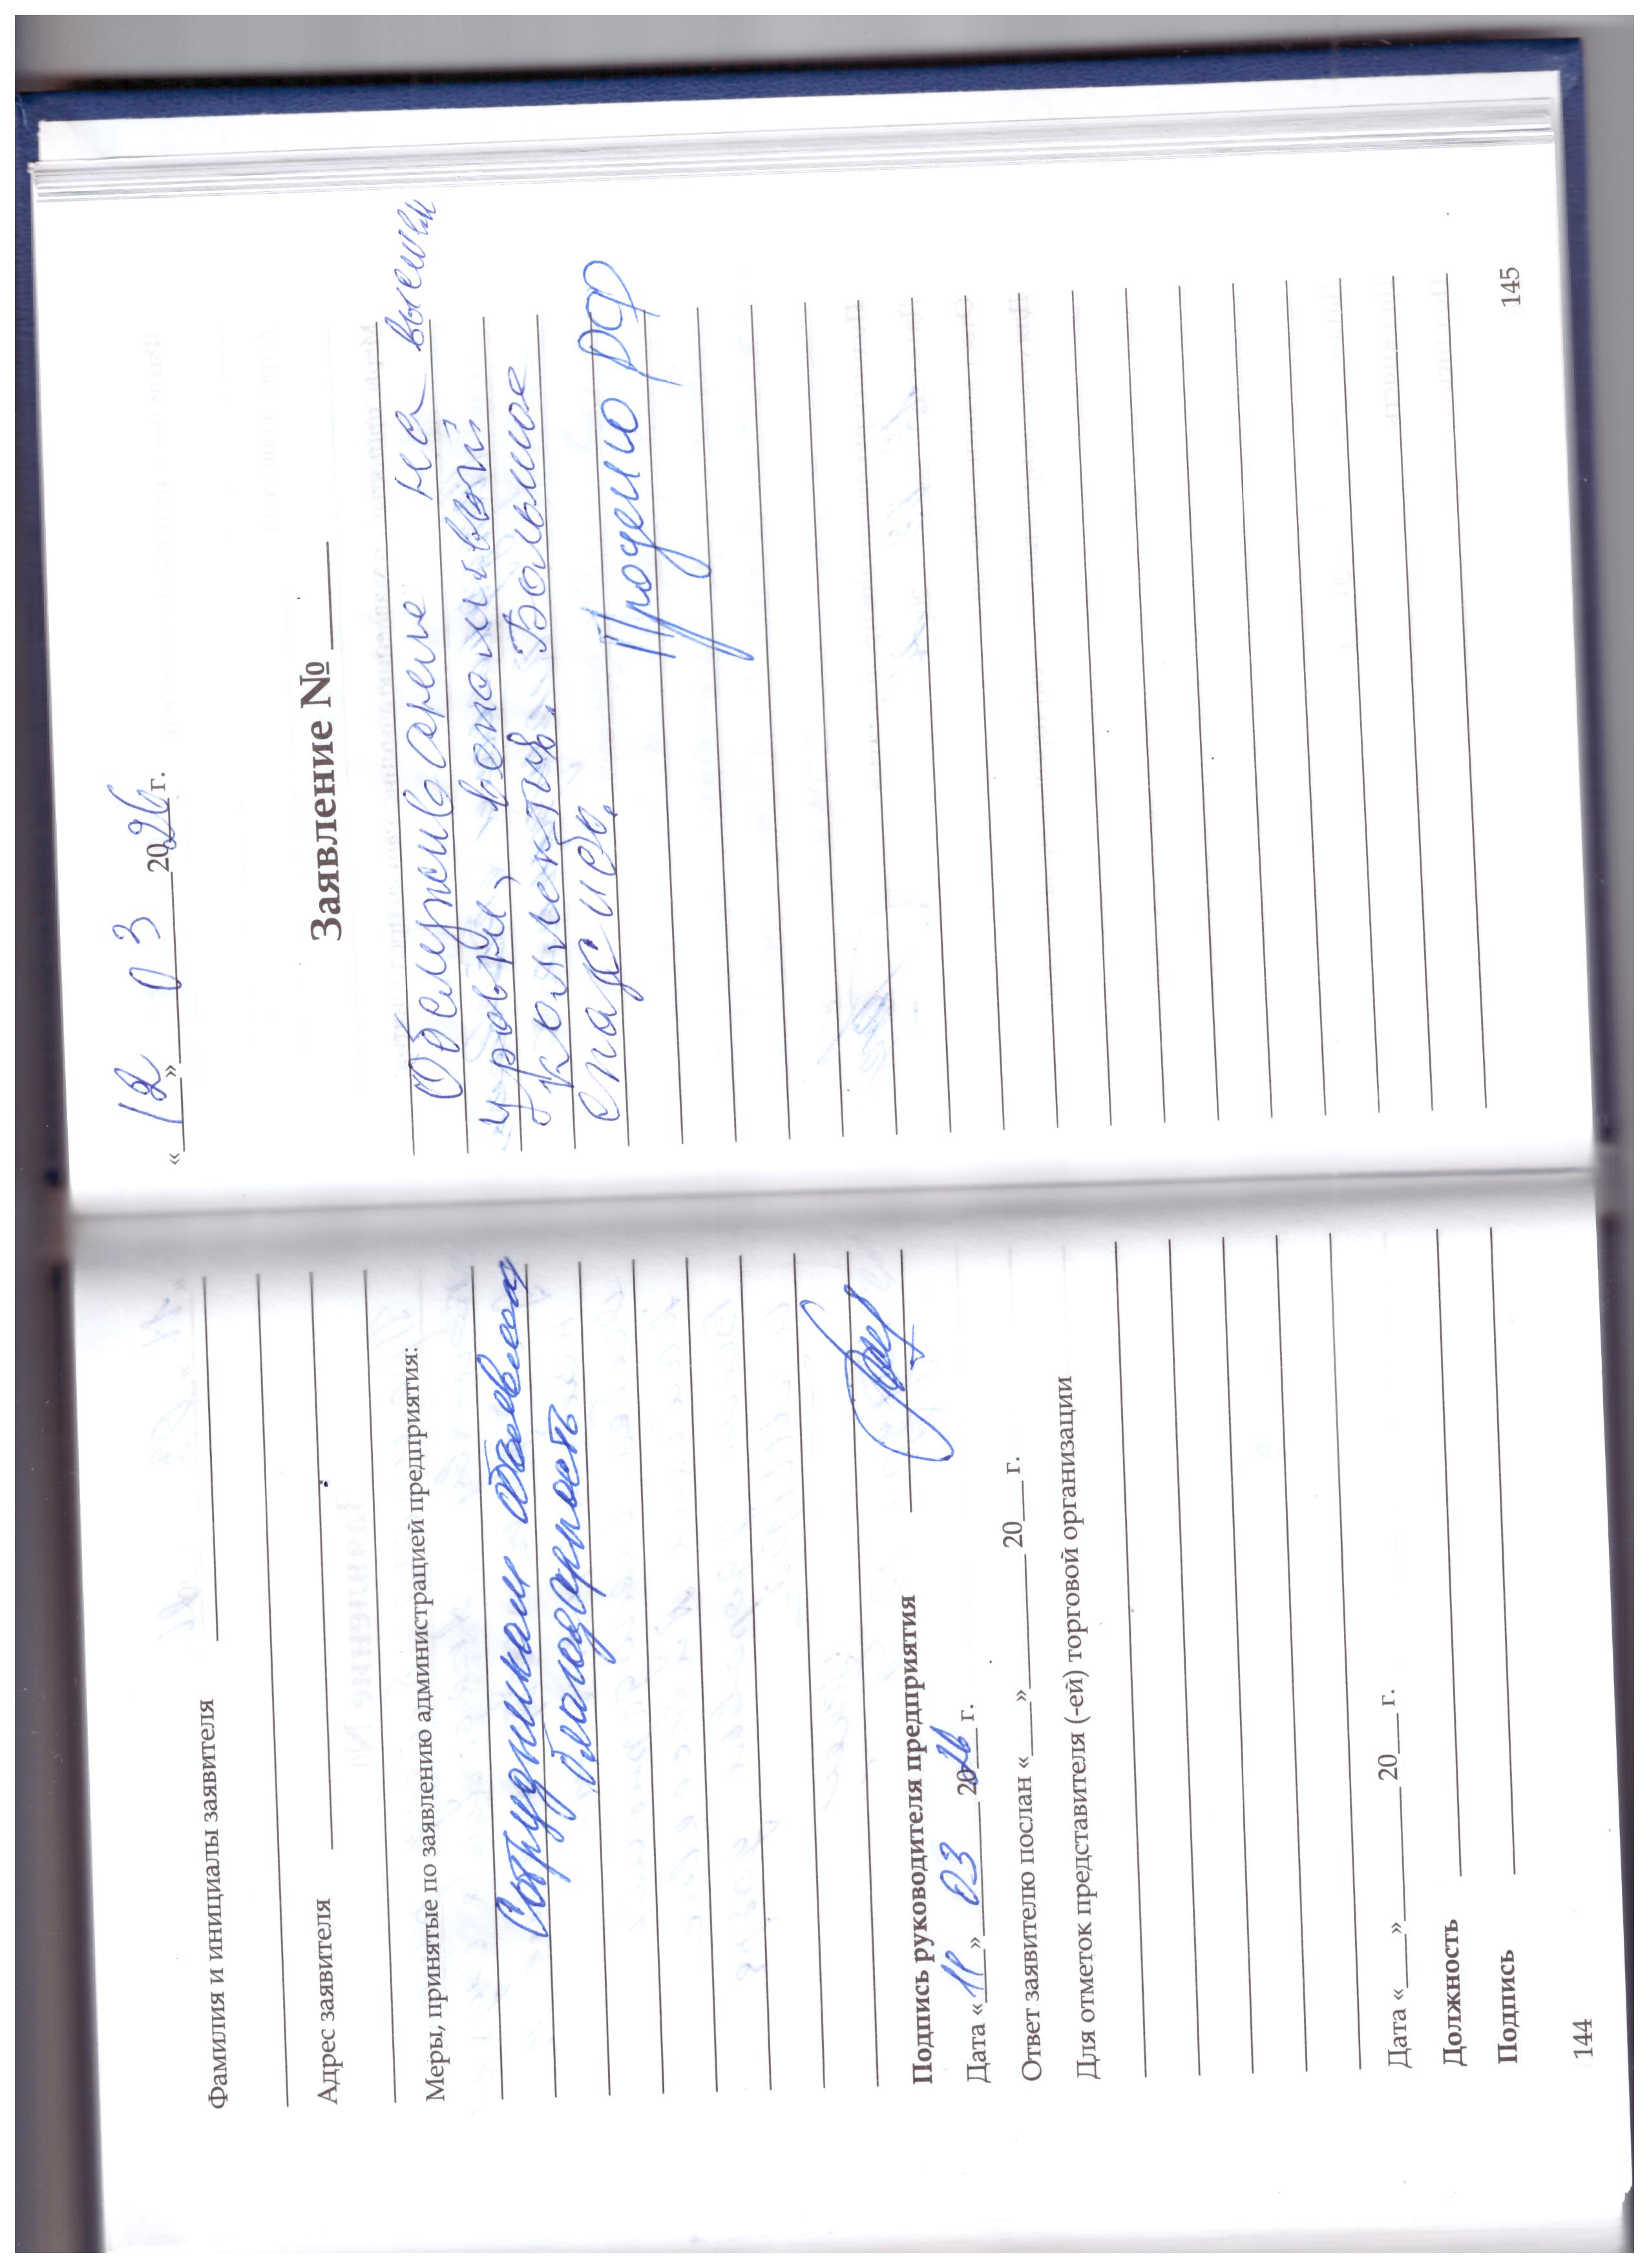 Фамилия и инициалы заявителя
Адрес заявителя
Меры, принятые по заявлению администрацией предприятия:
Сотрудникам объявлена
благодарность
Подпись руководителя предприятия
Дата «11» 03 2026 г.
Ответ заявителю послан «___»________20___г.
Для отметок представителя (-ей) торговой организации
Дата «___»________20___г.
Должность
Подпись
144
«12» 03 2026 г.
Заявление №
Обслуживание на высшем
уровне, вежливый
коллектив. Большое
спасибо.
145